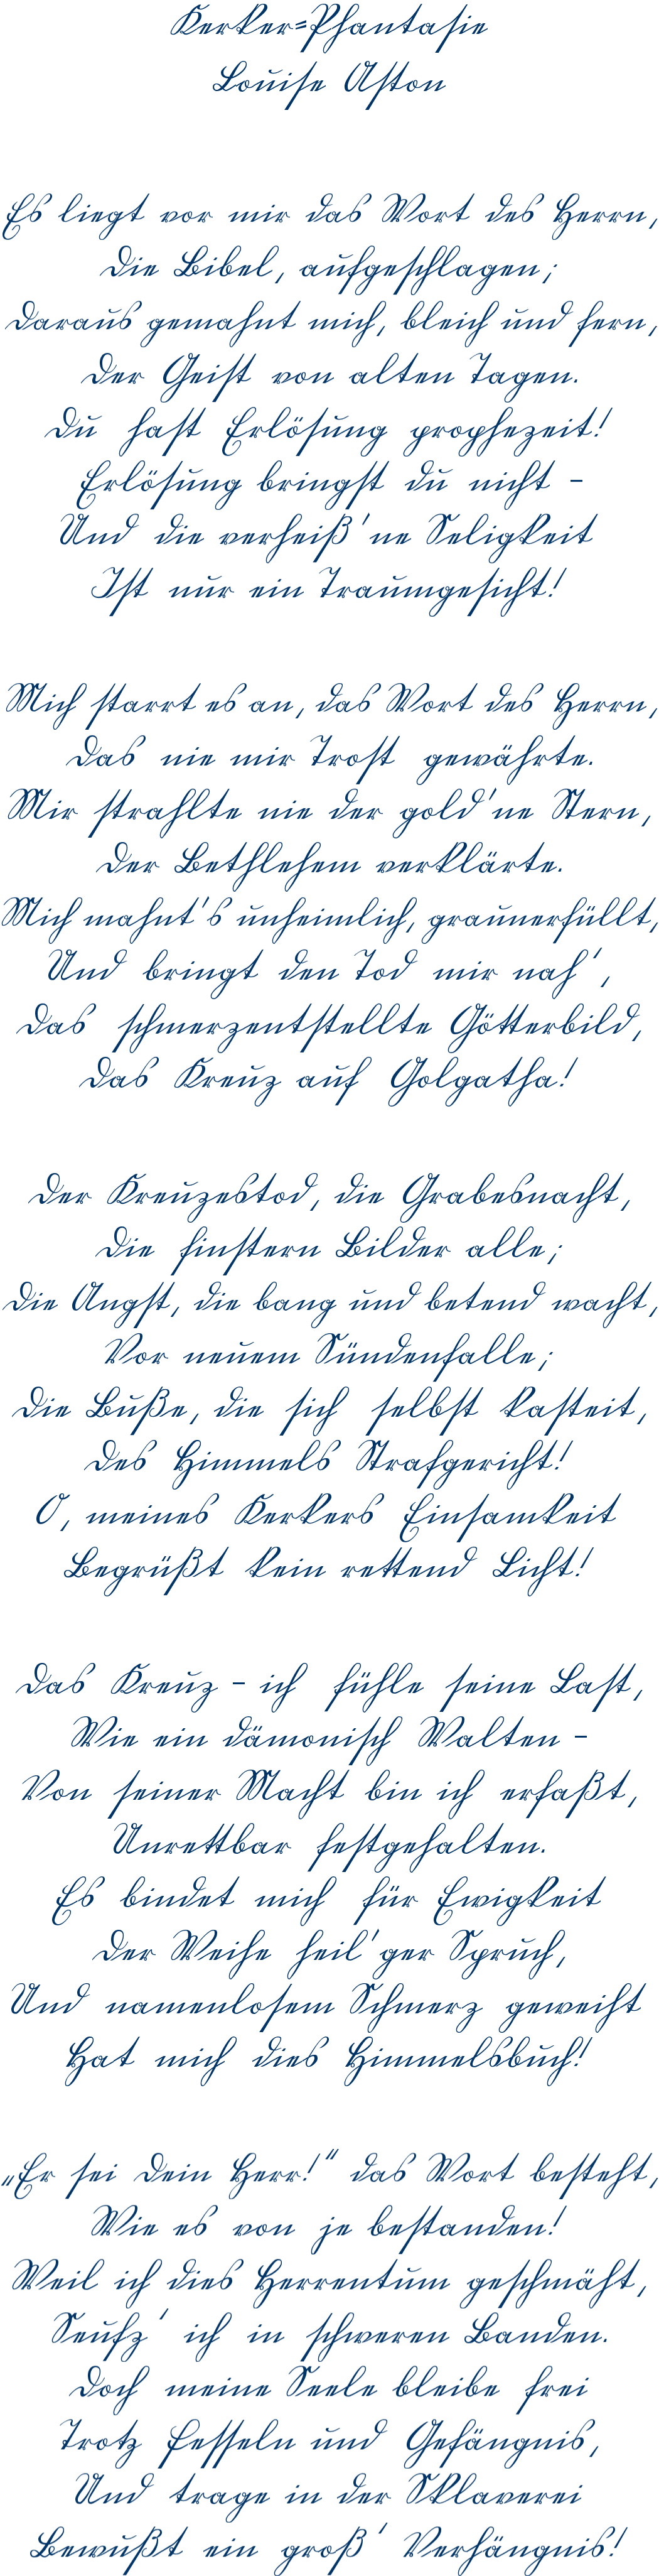 Kerker-Phantasie
Louise Aston
Es liegt vor mir das Wort des Herrn,
Die Bibel, aufgeschlagen;
Daraus gemahnt mich, bleich und fern,
Der Geist von alten Tagen.
Du hast Erlösung prophezeit!
Erlösung bringst du nicht –
Und die verheiß'ne Seligkeit
Ist nur ein Traumgesicht!
Mich starrt es an, das Wort des Herrn,
Das nie mir Trost gewährte.
Mir strahlte nie der gold'ne Stern,
Der Bethlehem verklärte.
Mich mahnt's unheimlich, graunerfüllt,
Und bringt den Tod mir nah',
Das schmerzentstellte Götterbild,
Das Kreuz auf Golgatha!
Der Kreuzestod, die Grabesnacht,
Die finstern Bilder alle;
Die Angst, die bang und betend wacht,
Vor neuem Sündenfalle;
Die Buße, die sich selbst kasteit,
Des Himmels Strafgericht!
O, meines Kerkers Einsamkeit
Begrüßt kein rettend Licht!
Das Kreuz – ich fühle seine Last,
Wie ein dämonisch Walten –
Von seiner Macht bin ich erfaßt,
Unrettbar festgehalten.
Es bindet mich für Ewigkeit
Der Weihe heil'ger Spruch,
Und namenlosem Schmerz geweiht
Hat mich dies Himmelsbuch!
„Er sei Dein Herr!“ das Wort besteht,
Wie es von je bestanden!
Weil ich dies Herrentum geschmäht,
Seufz' ich in schweren Banden.
Doch meine Seele bleibe frei
Trotz Fesseln und Gefängnis,
Und trage in der Sklaverei
Bewußt ein groß' Verhängnis!